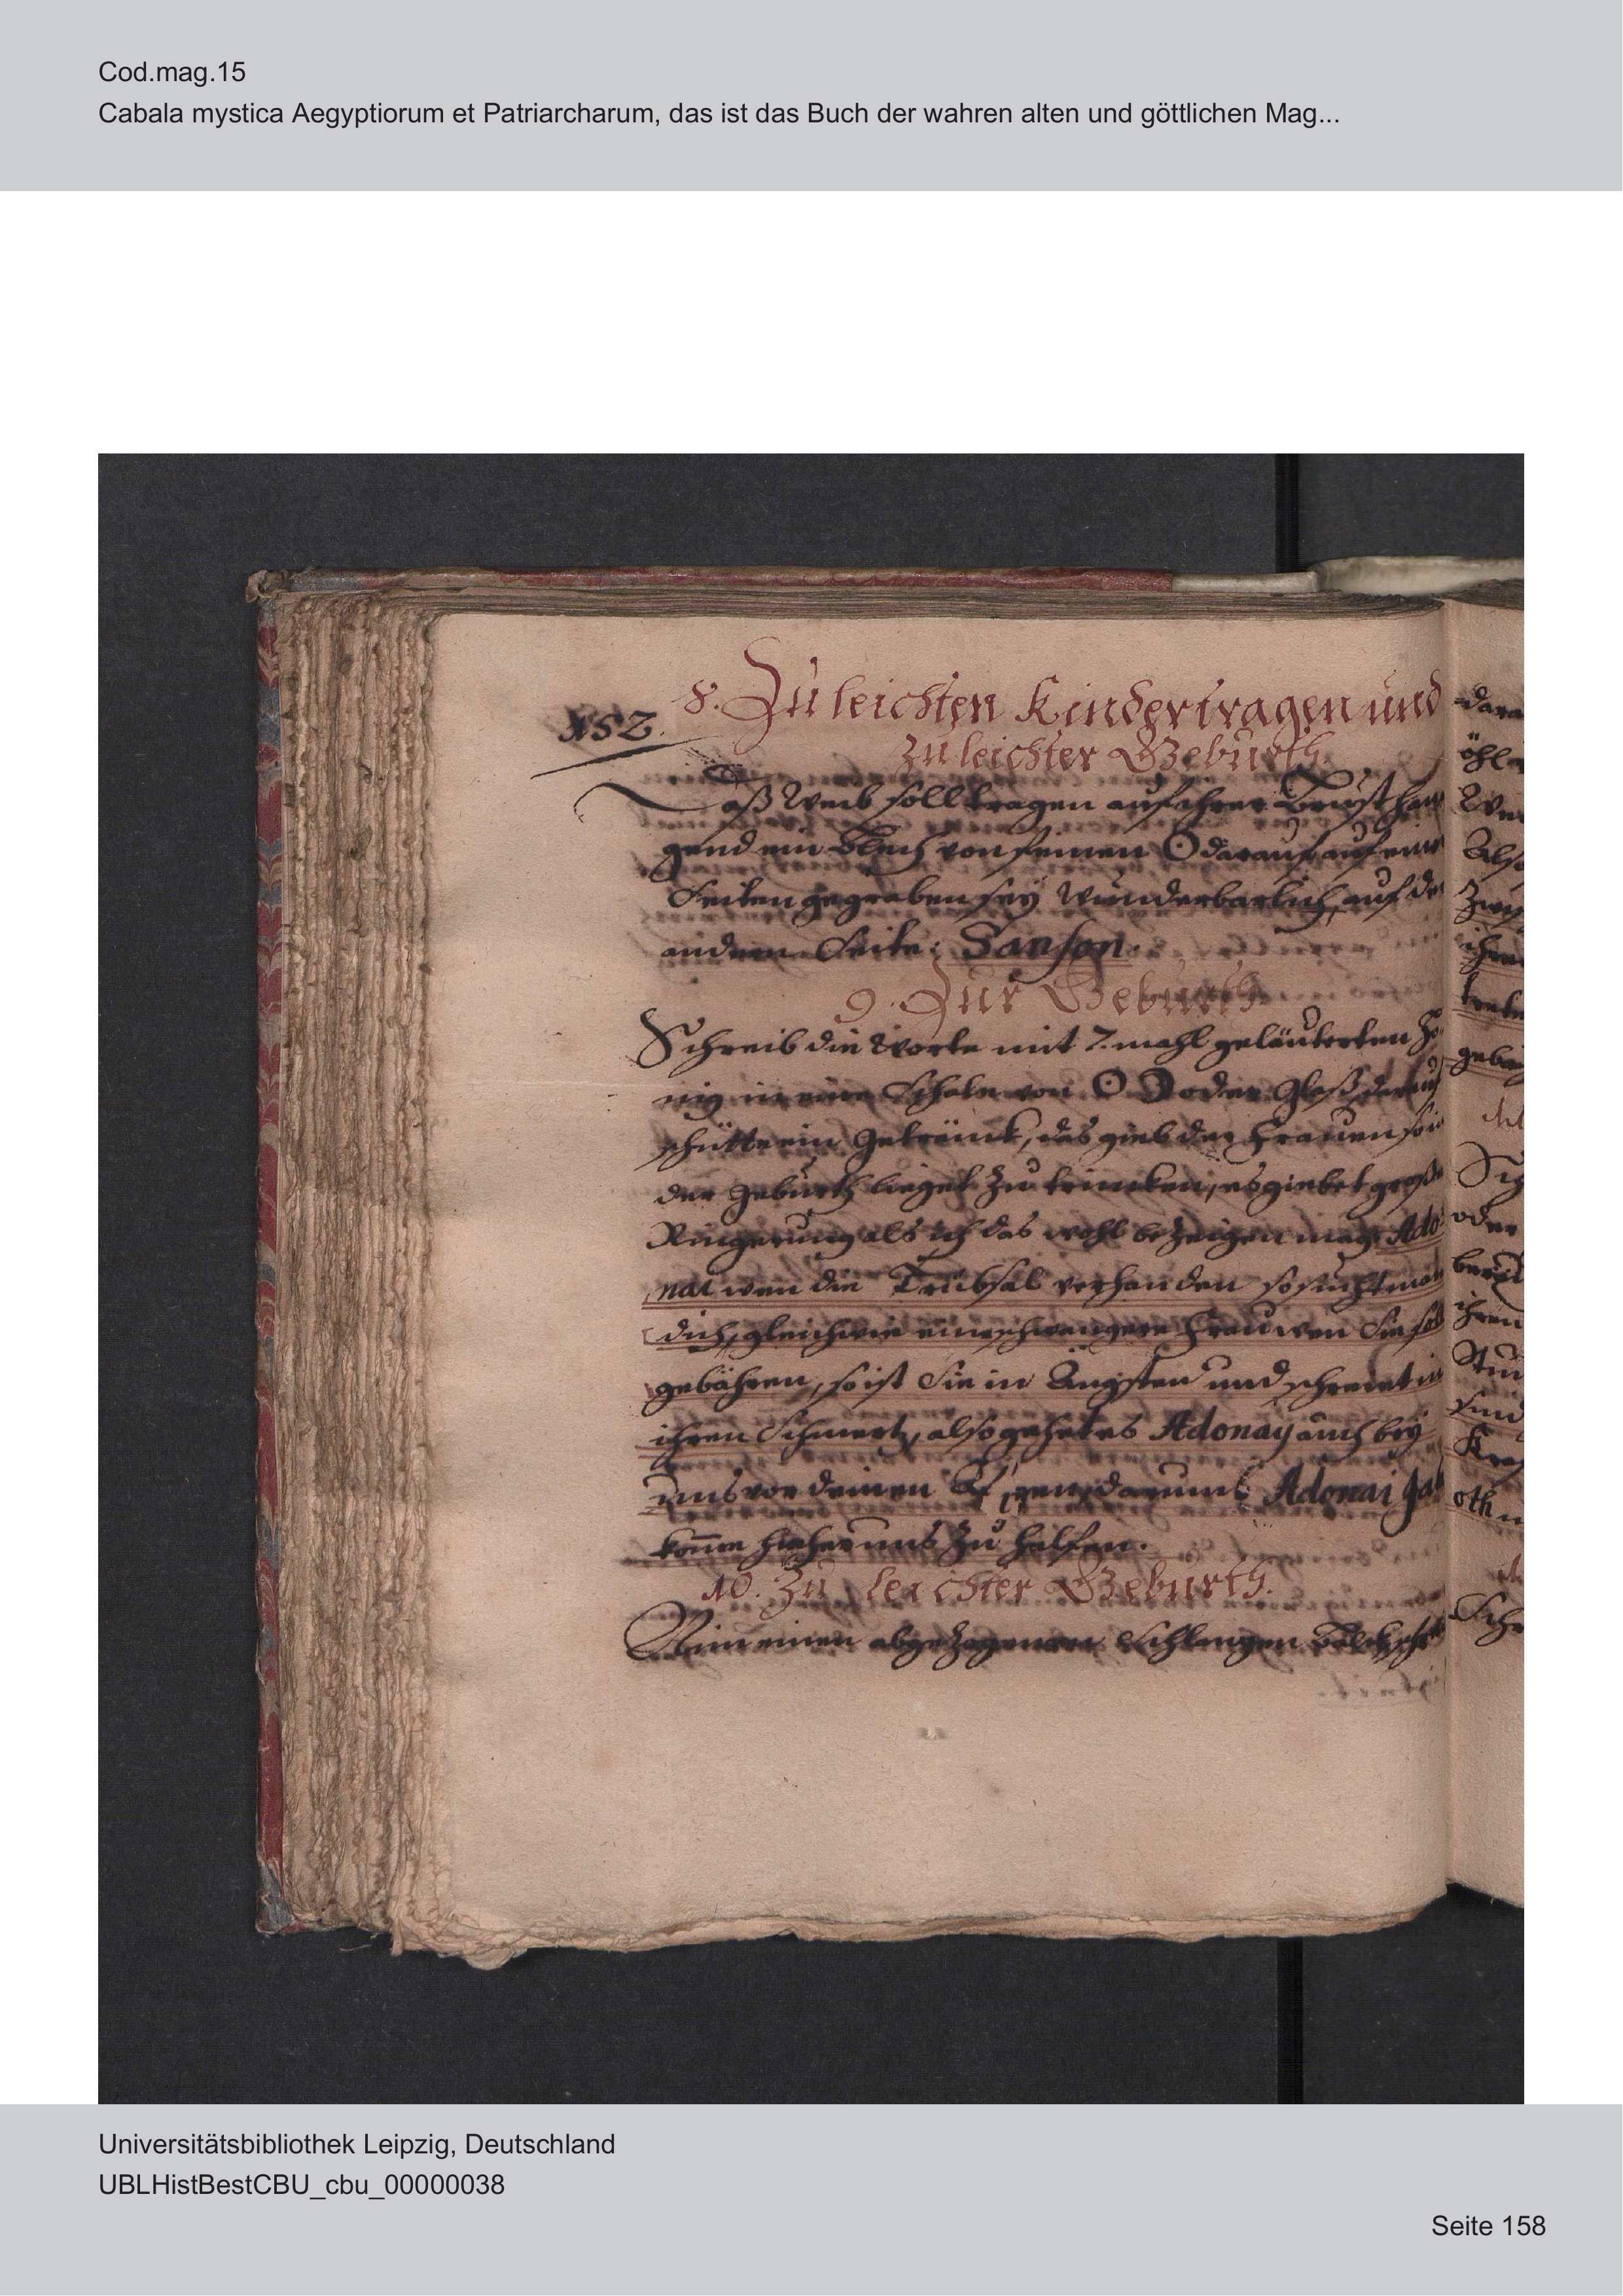 Cod.mag.15
Cabala mystica Aegyptiorum et Patriarcharum, das ist das Buch der wahren alten und göttlichen Mag...
152.
8. Zu leichten Kindertragen und
zu leichter Geburth.
Daß Weib soll tragen auf ihrer Brust han
gend ein Blech von feinen ☉ darauf auf eine
Seiten gegraben sey wunderbarlich, auf der
andern Seite: Sanson.
9. Zur Geburth.
Schreib die Worte mit 7. mahl geläuterten Ho
nig in eine Schale von ☉ ☽ oder Glaß darauf
schütte ein Getränck, das gieb der Frauen so in
der Geburth lieget zu trincken, es giebet große
Ringerung als ich das wohl bezeigen mag. Ado
nai wen die Trübsal verhanden so sucht man
dich, gleichwie eine schwangere Frau wen Sie soll
gebähren, so ist Sie in Ängsten und schreiet in
ihren Schmertz, also gehet es Adonay auch bey
uns vor deinen darumb Adonai
kom̅e hieher uns zu helfen.
10. Zu leichter Geburth.
Nim einen abgezogenen Schlangen
dara
öhl
Also
Zwey
ihren
oder
ihren
oth
Universitätsbibliothek Leipzig, Deutschland
UBLHistBestCBU_cbu_00000038
Seite 158